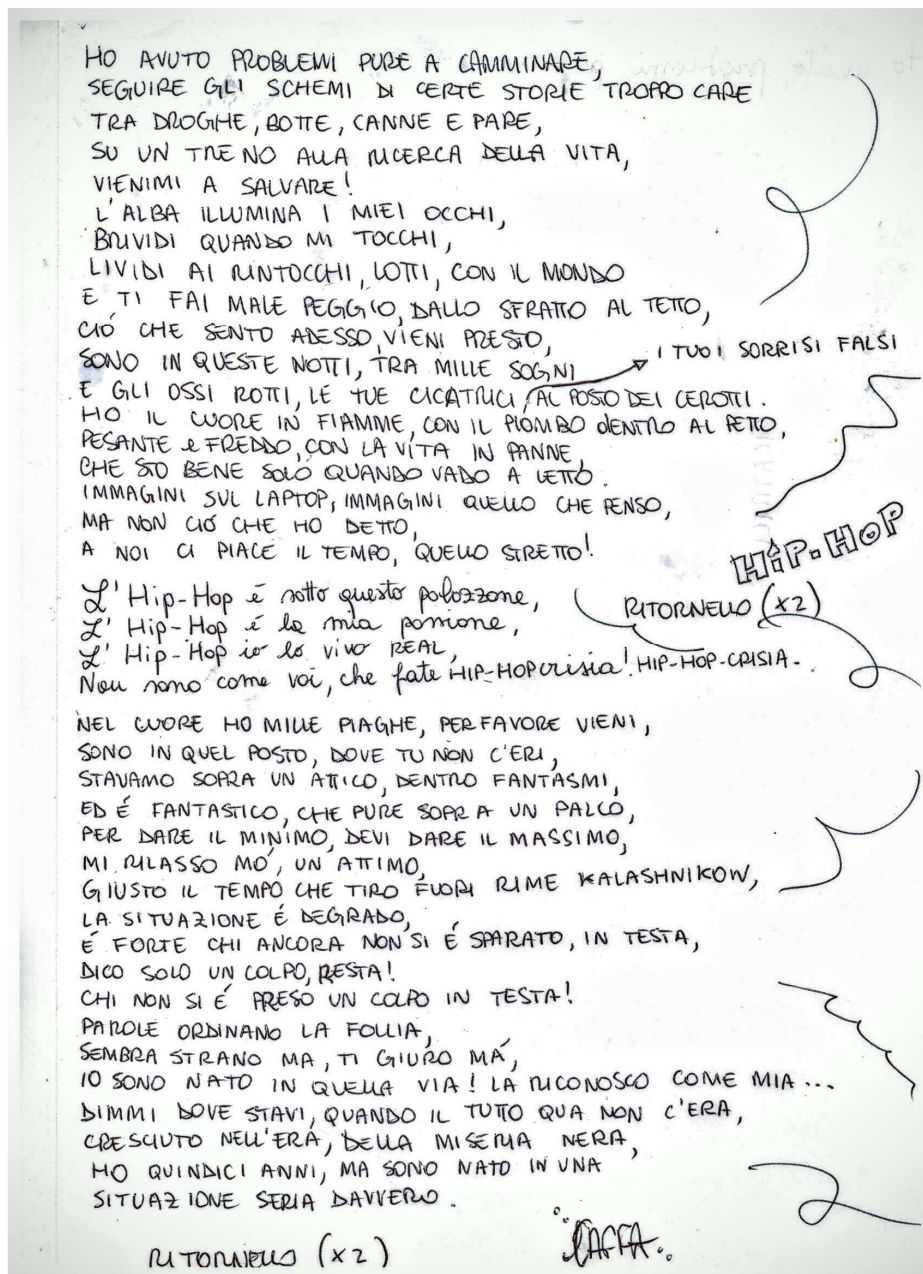 HO AVUTO PROBLEMI PURE A CAMMINARE,
SEGUIRE GLI SCHEMI DI CERTE STORIE TROPPO CARE
TRA DROGHE, BOTTE, CANNE E PARE,
SU UN TRENO ALLA RICERCA DELLA VITA,
VIENIMI A SALVARE!
L'ALBA ILLUMINA I MIEI OCCHI,
BRIVIDI QUANDO MI TOCCHI,
LIVIDI AI RINTOCCHI, LOTTI, CON IL MONDO
E TI FAI MALE PEGGIO, DALLO SFRATTO AL TETTO,
CIÓ CHE SENTO ADESSO, VIENI PRESTO,
SONO IN QUESTE NOTTI, TRA MILLE SOGNI
I TUOI SORRISI FALSI
E GLI OSSI ROTTI, LE TUE CICATRICI, AL POSTO DEI CEROTTI.
HO IL CUORE IN FIAMME, CON IL PIOMBO dENTRO AL PETTO,
PESANTE e FREDDO, CON LA VITA IN PANNE,
CHE STO BENE SOLO QUANDO VADO A LETTO.
IMMAGINI SUL LAPTOP, IMMAGINI QUELLO CHE PENSO,
MA NON CIÓ CHE HO DETTO,
A NOI CI PIACE IL TEMPO, QUELLO STRETTO!
HIP-HOP
L'Hip-Hop é sotto questo palazzone,
RITORNELLO (x2)
L'Hip-Hop é la mia passione,
L'Hip-Hop io lo vivo REAL,
Non sono come voi, che fate HIP-HOPcrisia! HIP-HOP-CRISIA.
NEL CUORE HO MILLE PIAGHE, PER FAVORE VIENI,
SONO IN QUEL POSTO, DOVE TU NON C'ERI,
STAVAMO SOPRA UN ATTICO, DENTRO FANTASMI,
ED É FANTASTICO, CHE PURE SOPRA UN PALCO,
PER DARE IL MINIMO, DEVI DARE IL MASSIMO,
MI RILASSO MO', UN ATTIMO,
GIUSTO IL TEMPO CHE TIRO FUORI RIME KALASHNIKOW,
LA SITUAZIONE É DEGRADO,
É FORTE CHI ANCORA NON SI É SPARATO, IN TESTA,
DICO SOLO UN COLPO, RESTA!
CHI NON SI É PRESO UN COLPO IN TESTA!
PAROLE ORDINANO LA FOLLIA,
SEMBRA STRANO MA, TI GIURO MÁ,
IO SONO NATO IN QUELLA VIA! LA RICONOSCO COME MIA...
DIMMI DOVE STAVI, QUANDO IL TUTTO QUA NON C'ERA,
CRESCIUTO NELL'ERA, DELLA MISERIA NERA,
HO QUINDICI ANNI, MA SONO NATO IN UNA
SITUAZIONE SERIA DAVVERO.
RITORNELLO (x2)